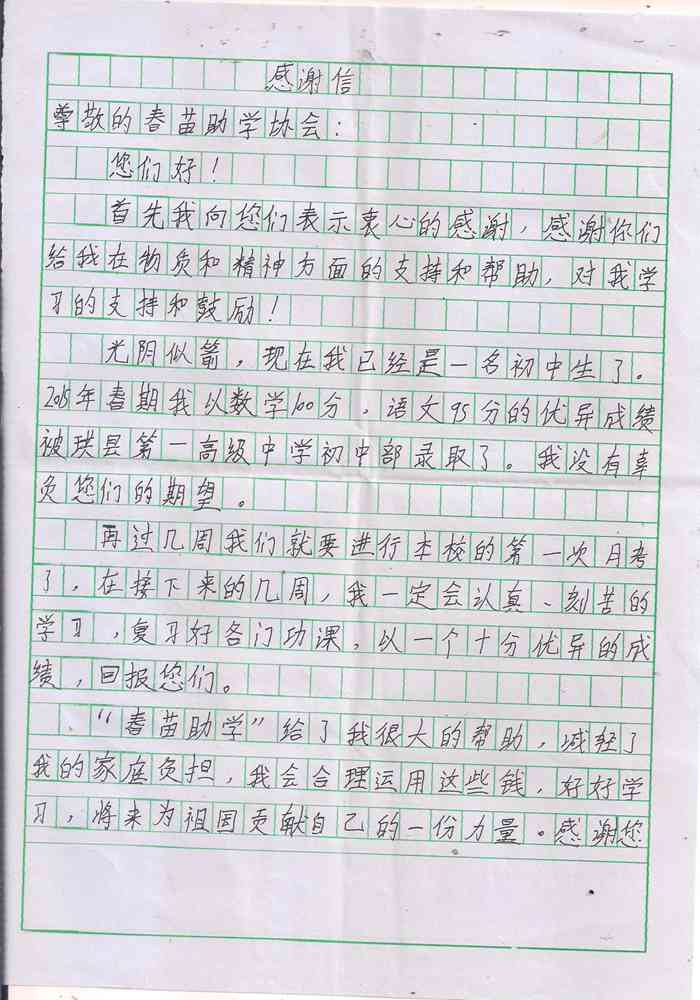 感谢信
尊敬的春苗助学协会：
您们好！
首先我向您们表示衷心的感谢，感谢你们
给我在物质和精神方面的支持和帮助，对我学
习的支持和鼓励！
光阴似箭，现在我已经是一名初中生了。
2015年春期我以数学100分，语文95分的优异成绩
被珙县第一高级中学初中部录取了。我没有辜
负您们的期望。
再过几周我们就要进行本校的第一次月考
了，在接下来的几周，我一定会认真、刻苦的
学习，复习好各门功课，以一个十分优异的成
绩，回报您们。
“春苗助学”给了我很大的帮助，减轻了
我的家庭负担，我会合理运用这些钱，好好学
习，将来为祖国贡献自己的一份力量。感谢您